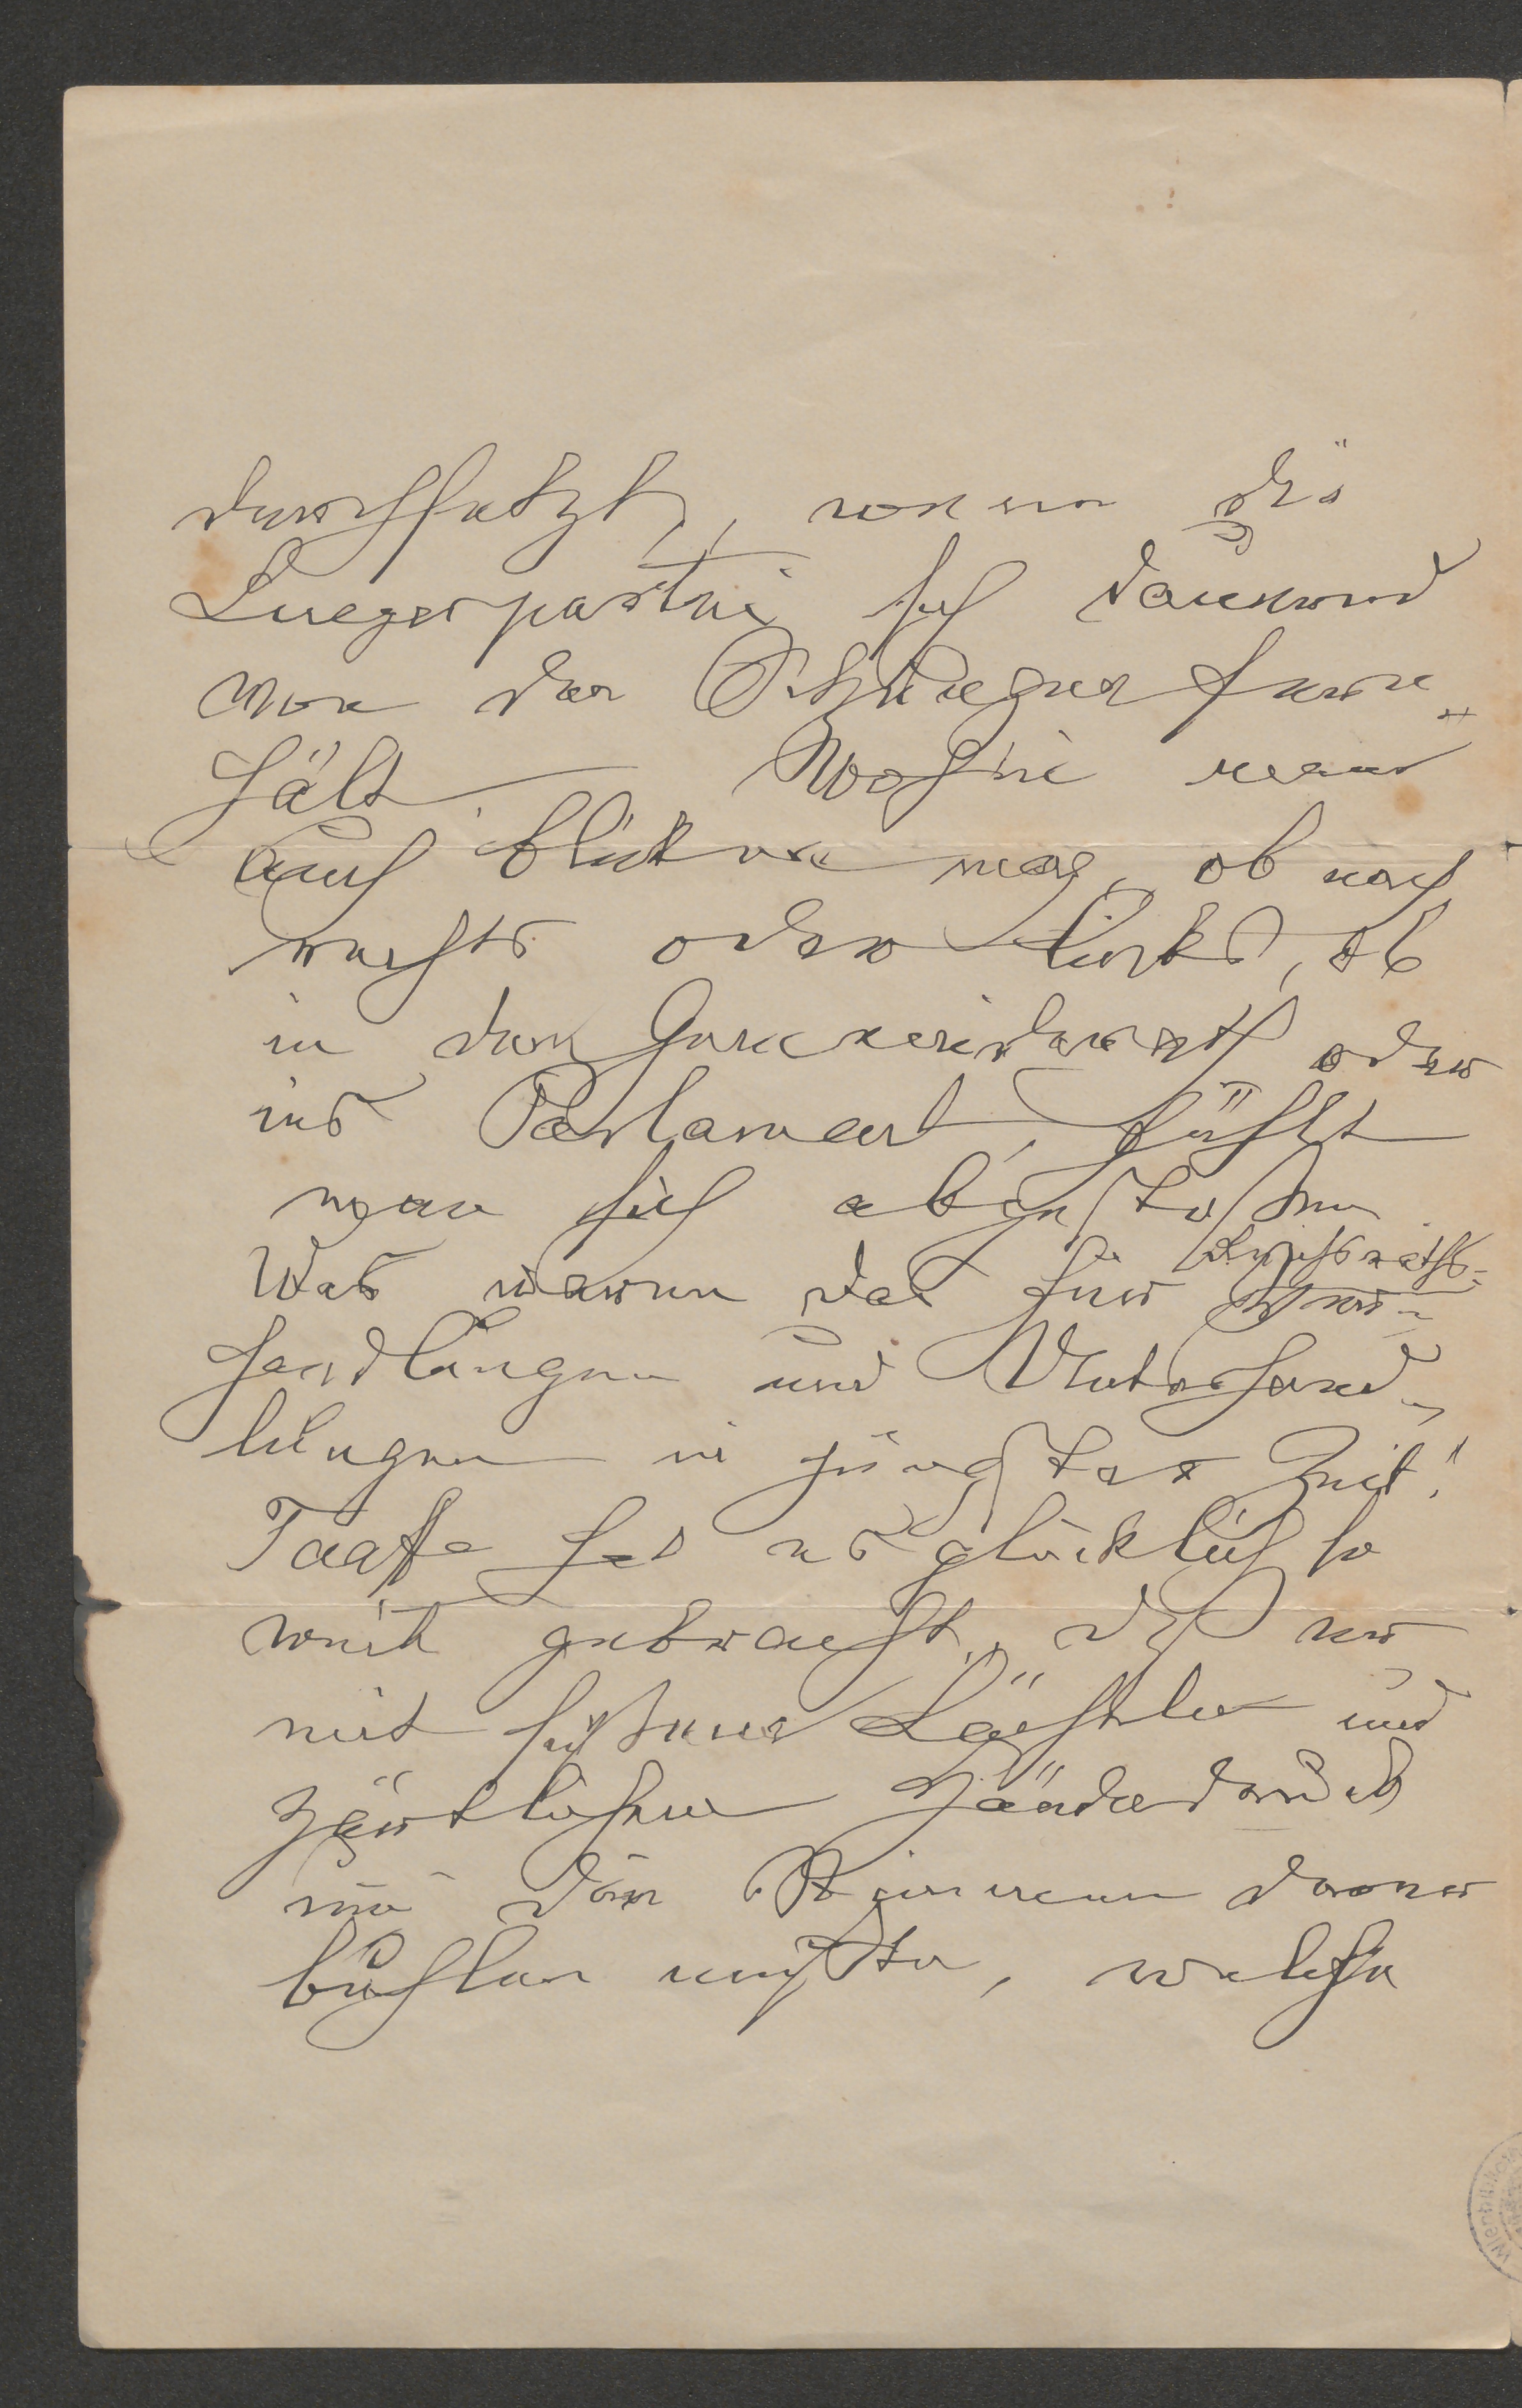 durchsetzt, wenn die
Luegerpartei sich dauernd
von der Sitzungen fern„
hält. – Wohin man
auch blicken mag, ob nach
rechts oder links, ob
in den Gemeinderath oder
ins Parlament, fühlt
man sich abgestoßen
Was waren das für Reichsraths-
Ver-
handlungen und Unterhand„
lungen in jüngster Zeit!
Taaffe hat es glücklich so
weit gebracht, daß er
mit süßem Lächeln und
zärtlichem Händedruck
um den Männern
buhlen mußte, welche